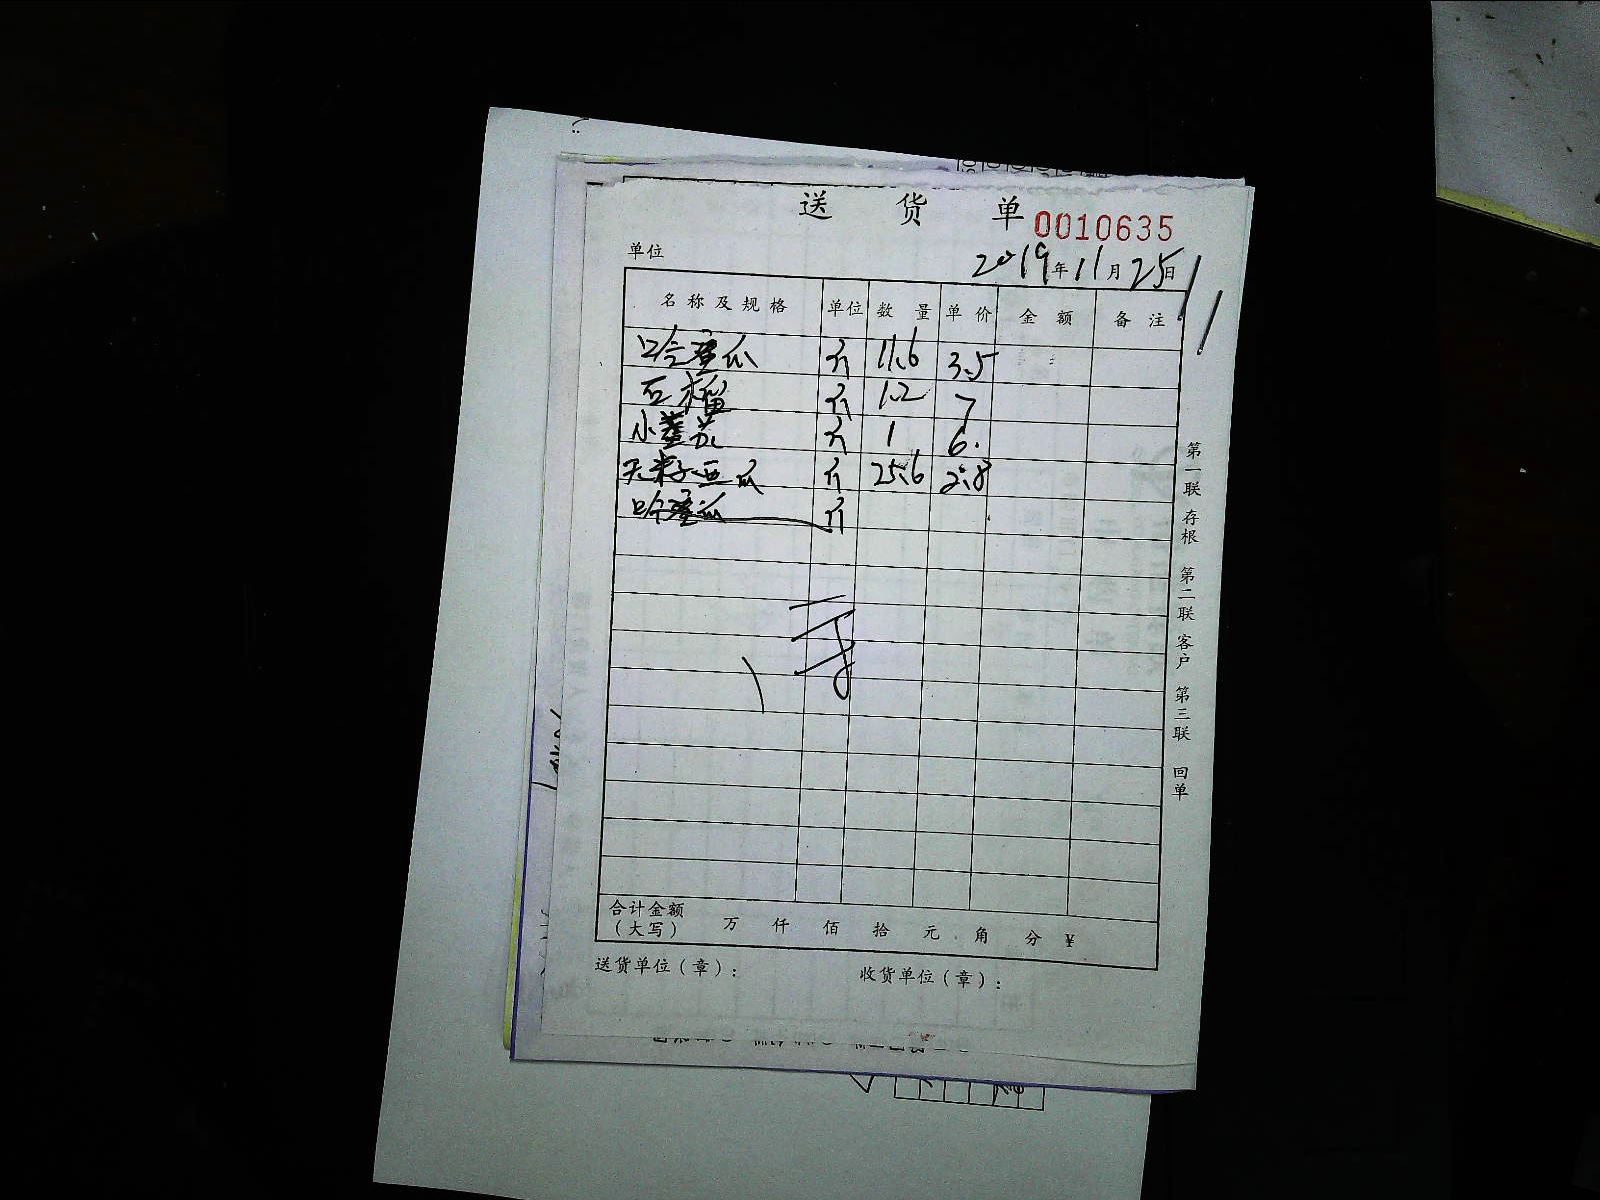 送货单 0010635
单位 2019年11月25日
名称及规格 单位 数量 单价 金额 备注
哈密瓜 斤 11.6 3.5
石榴 斤 1.2 7
小 斤 1 6.
无籽西瓜 斤 25.6 2.8
哈密瓜 斤
合计金额(大写) 万 仟 佰 拾 元 角 分 ¥
送货单位(章): 收货单位(章):
第一联 存根 第二联 客户 第三联 回单